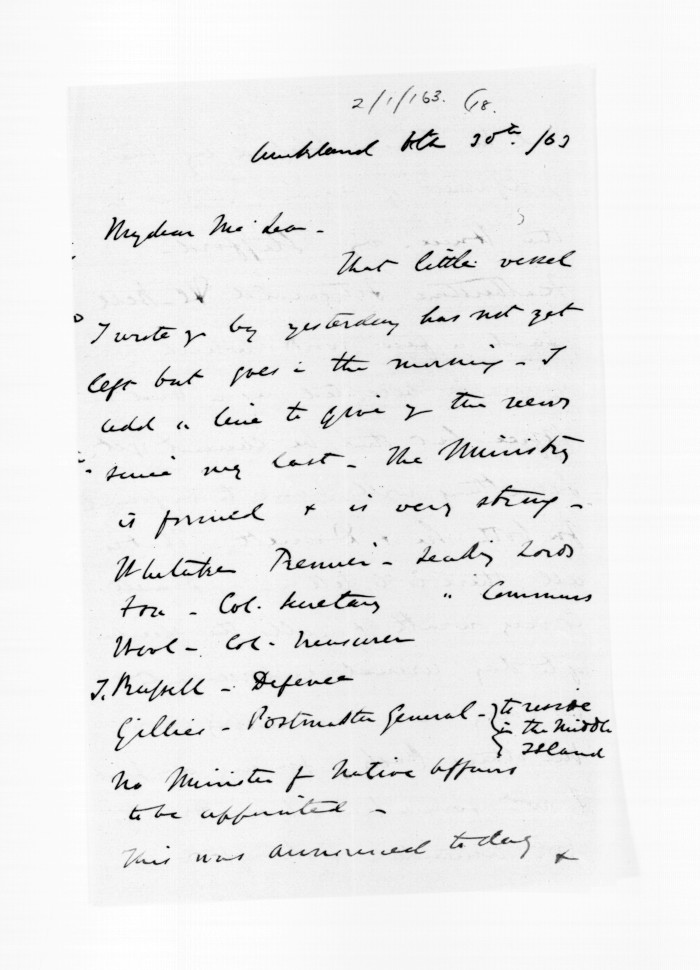 2/1/163. (18.
Auckland Octr 30th. /63
My dear McLean -
That little vessel
I wrote you by yesterday has not yet
left but goes in the morning - I
add a line to give you the news
since my last - The Ministry
is formed & is very strong -
Whitaker Premier - leading Lords
Fox - Col. Secretary " Commons
Wood - Col. Treasurer
T. Russell - Defence
Gillies - Postmaster General - to reside
in the Middle
Island
No Minister of Native Affairs
to be appointed -
This was announced today &